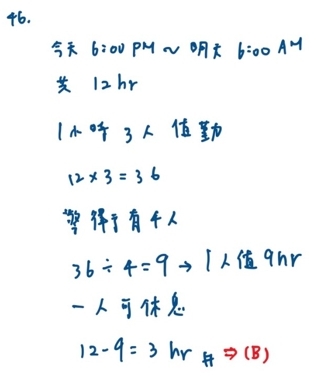 46.
今天 6:00 PM ~ 明天 6:00 AM
共 12 hr
1 小時 3 人 值勤
12 × 3 = 36
警衛有 4 人
36 ÷ 4 = 9 → 1 人值 9 hr
一人可休息
12 - 9 = 3 hr # ⇒ (B)